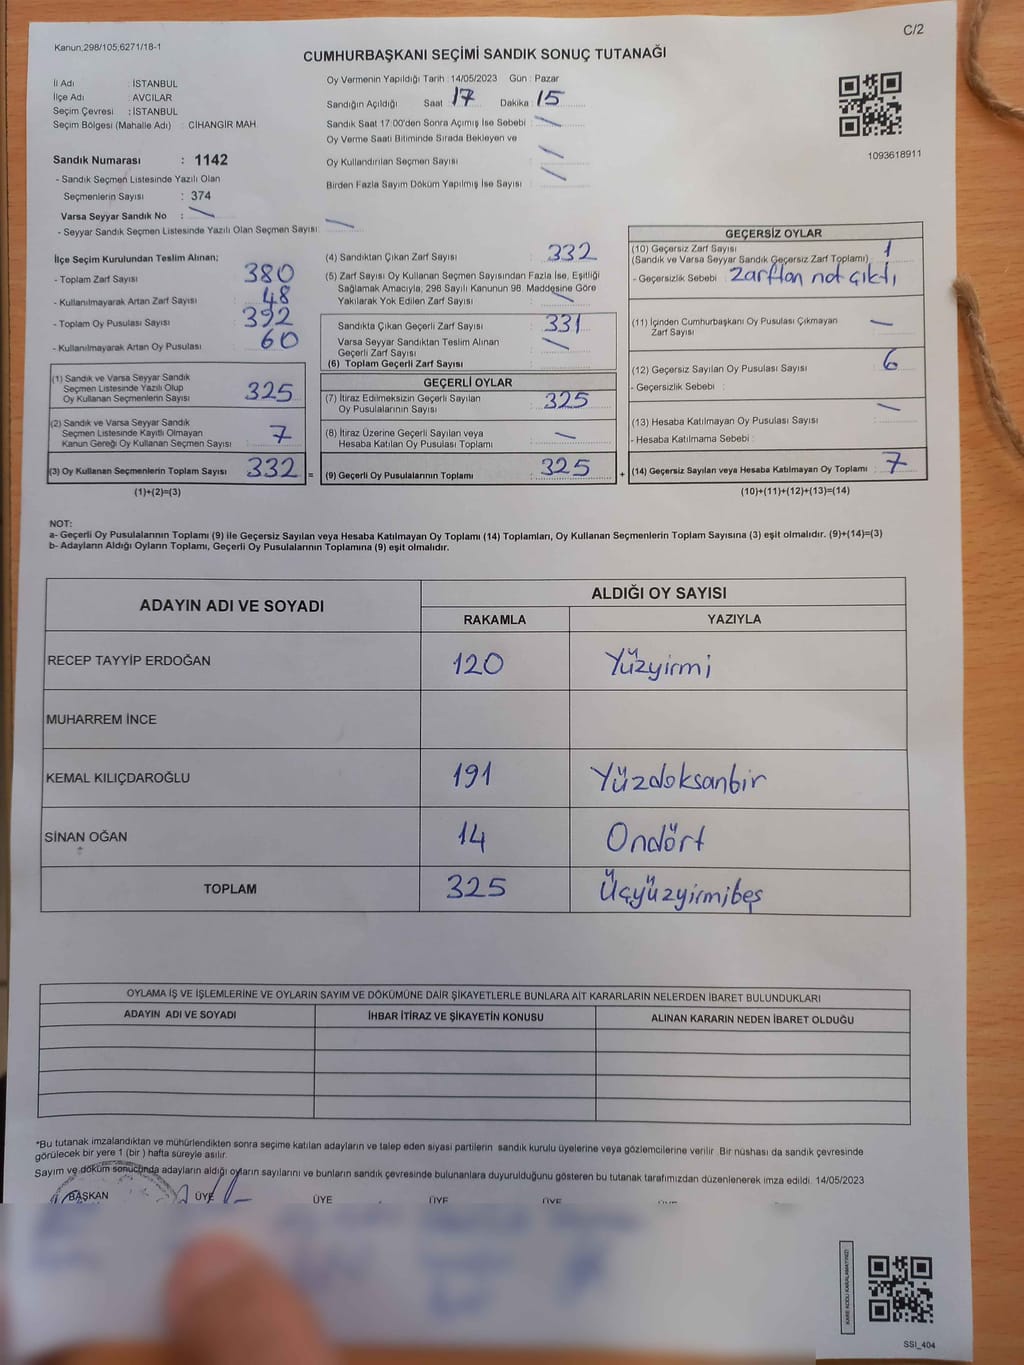 C/2
Kanun;298/105;6271/18-1
CUMHURBAŞKANI SEÇİMİ SANDIK SONUÇ TUTANAĞI
İl Adı : İSTANBUL
İlçe Adı : AVCILAR
Seçim Çevresi : İSTANBUL
Seçim Bölgesi (Mahalle Adı) : CİHANGİR MAH.
Sandık Numarası : 1142
- Sandık Seçmen Listesinde Yazılı Olan
Seçmenlerin Sayısı : 374
Varsa Seyyar Sandık No :
- Seyyar Sandık Seçmen Listesinde Yazılı Olan Seçmen Sayısı:
Oy Vermenin Yapıldığı Tarih : 14/05/2023 Gün : Pazar
Sandığın Açıldığı Saat 17 Dakika 15
Sandık Saat 17:00'den Sonra Açımış İse Sebebi :
Oy Verme Saati Bitiminde Sırada Bekleyen ve
Oy Kullandırılan Seçmen Sayısı :
Birden Fazla Sayım Döküm Yapılmış İse Sayısı :
1093618911
İlçe Seçim Kurulundan Teslim Alınan;
- Toplam Zarf Sayısı : 380
- Kullanılmayarak Artan Zarf Sayısı : 48
- Toplam Oy Pusulası Sayısı : 392
- Kullanılmayarak Artan Oy Pusulası : 60
(1) Sandık ve Varsa Seyyar Sandık
Seçmen Listesinde Yazılı Olup
Oy Kullanan Seçmenlerin Sayısı : 325
(2) Sandık ve Varsa Seyyar Sandık
Seçmen Listesinde Kayıtlı Olmayan
Kanun Gereği Oy Kullanan Seçmen Sayısı : 7
(3) Oy Kullanan Seçmenlerin Toplam Sayısı : 332 =
(1)+(2)=(3)
(4) Sandıktan Çıkan Zarf Sayısı : 332
(5) Zarf Sayısı Oy Kullanan Seçmen Sayısından Fazla İse, Eşitliği
Sağlamak Amacıyla, 298 Sayılı Kanunun 98. Maddesine Göre
Yakılarak Yok Edilen Zarf Sayısı :
Sandıkta Çıkan Geçerli Zarf Sayısı : 331
Varsa Seyyar Sandıktan Teslim Alınan
Geçerli Zarf Sayısı :
(6) Toplam Geçerli Zarf Sayısı :
GEÇERLİ OYLAR
(7) İtiraz Edilmeksizin Geçerli Sayılan
Oy Pusulalarının Sayısı : 325
(8) İtiraz Üzerine Geçerli Sayılan veya
Hesaba Katılan Oy Pusulası Toplamı :
(9) Geçerli Oy Pusulalarının Toplamı : 325 +
GEÇERSİZ OYLAR
(10) Geçersiz Zarf Sayısı
(Sandık ve Varsa Seyyar Sandık Geçersiz Zarf Toplamı) : 1
- Geçersizlik Sebebi : Zarftan not çıktı
(11) İçinden Cumhurbaşkanı Oy Pusulası Çıkmayan
Zarf Sayısı :
(12) Geçersiz Sayılan Oy Pusulası Sayısı : 6
- Geçersizlik Sebebi :
(13) Hesaba Katılmayan Oy Pusulası Sayısı :
- Hesaba Katılmama Sebebi :
(14) Geçersiz Sayılan veya Hesaba Katılmayan Oy Toplamı : 7
(10)+(11)+(12)+(13)=(14)
NOT:
a- Geçerli Oy Pusulalarının Toplamı (9) ile Geçersiz Sayılan veya Hesaba Katılmayan Oy Toplamı (14) Toplamları, Oy Kullanan Seçmenlerin Toplam Sayısına (3) eşit olmalıdır. (9)+(14)=(3)
b- Adayların Aldığı Oyların Toplamı, Geçerli Oy Pusulalarının Toplamına (9) eşit olmalıdır.
ADAYIN ADI VE SOYADI
ALDIĞI OY SAYISI
RAKAMLA YAZIYLA
RECEP TAYYİP ERDOĞAN 120 Yüzyirmi
MUHARREM İNCE
KEMAL KILIÇDAROĞLU 191 Yüzdoksanbir
SİNAN OĞAN 14 Ondört
TOPLAM 325 Üçyüzyirmibeş
OYLAMA İŞ VE İŞLEMLERİNE VE OYLARIN SAYIM VE DÖKÜMÜNE DAİR ŞİKAYETLERLE BUNLARA AİT KARARLARIN NELERDEN İBARET BULUNDUKLARI
ADAYIN ADI VE SOYADI İHBAR İTİRAZ VE ŞİKAYETİN KONUSU ALINAN KARARIN NEDEN İBARET OLDUĞU
*Bu tutanak imzalandıktan ve mühürlendikten sonra seçime katılan adayların ve talep eden siyasi partilerin sandık kurulu üyelerine veya gözlemcilerine verilir. Bir nüshası da sandık çevresinde
görülecek bir yere 1 (bir) hafta süreyle asılır.
Sayım ve döküm sonucunda adayların aldığı oyların sayılarını ve bunların sandık çevresinde bulunanlara duyurulduğunu gösteren bu tutanak tarafımızdan düzenlenerek imza edildi. 14/05/2023
BAŞKAN ÜYE ÜYE ÜYE ÜYE
KARE KODU KARALAMAYINIZ!
SSI_404